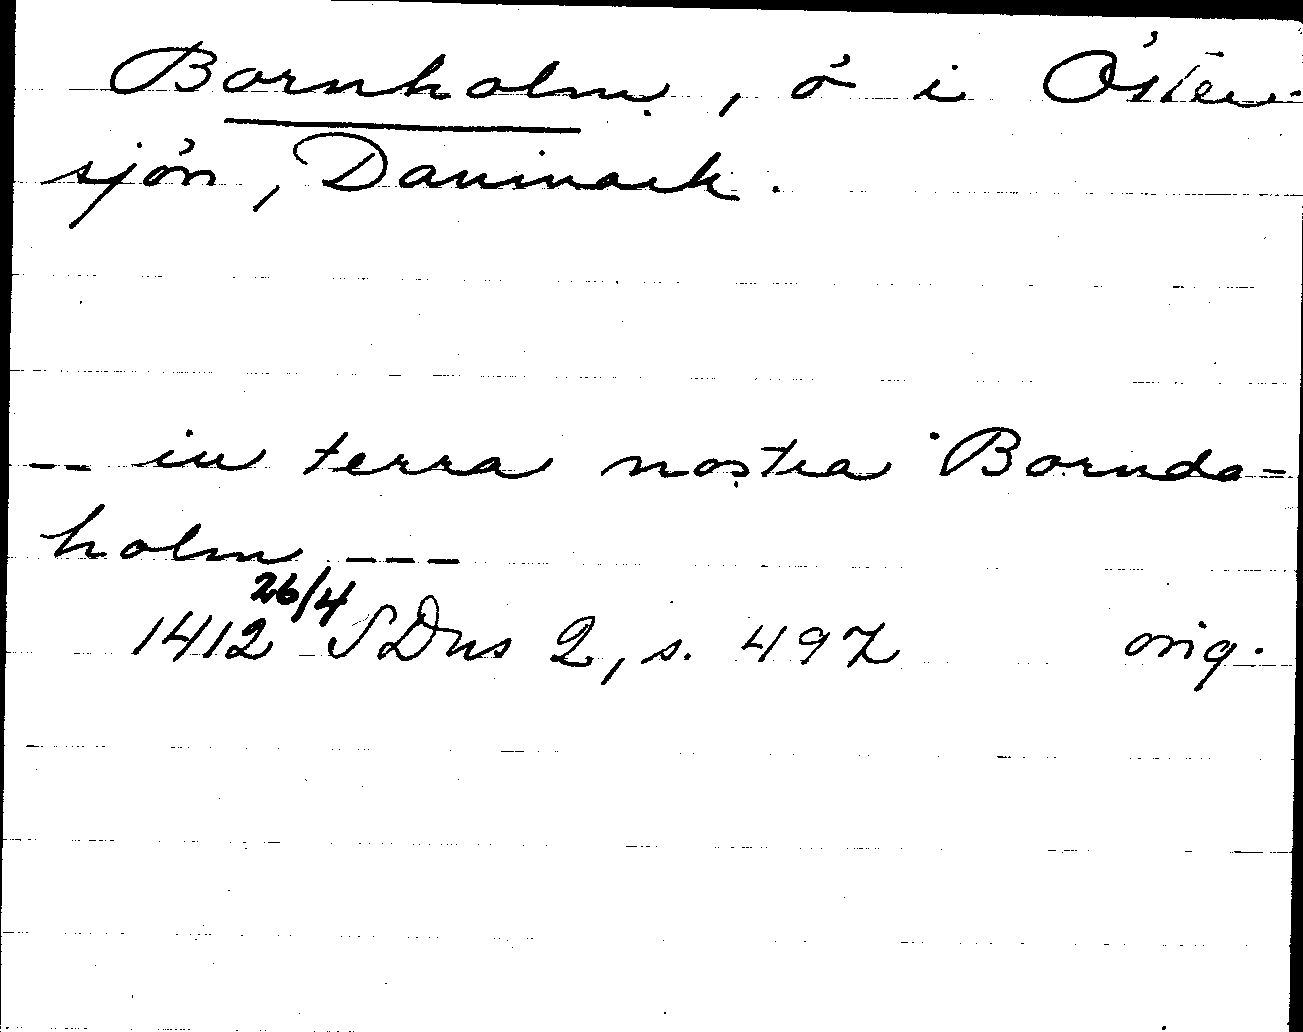 Bornholm, ö i Öster-
sjön, Danmark.
-- in terra nostra Bornda-
holm ---
1412 26/4 SDns 2, s. 497 orig.